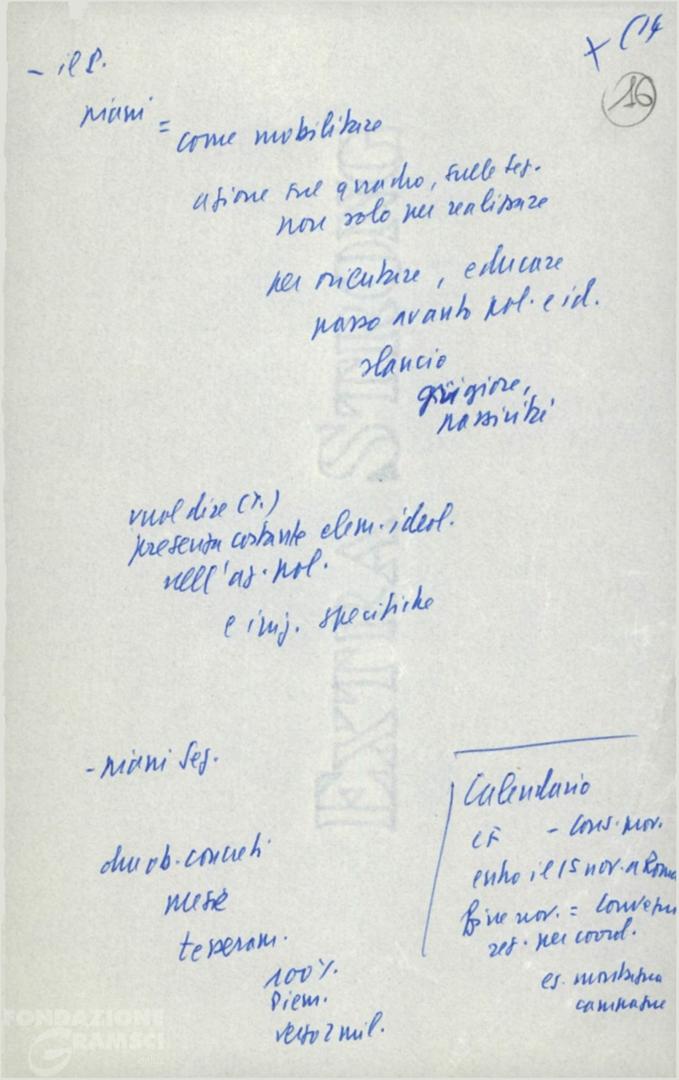 - il P.
+ C14
16
piani = come mobilitare
azione sul quadro, sulle sez.
non solo per realizzare
per orientare, educare
passo avanti pol. e id.
slancio
grigiore,
passività
vuol dire (T.)
presenza costante elem. ideol.
nell'az. pol.
e iniz. specifiche
- piani sez.
due ob. concreti
mese
tesseram.
100%
Diem.
verso 2 mil.
Calendario
CF - Cons. prov.
entro il 15 nov. a Roma
fine nov. = 
reg. per coord.
es. montagna
campagne
EXTRA STRONG
FONDAZIONE
GRAMSCI